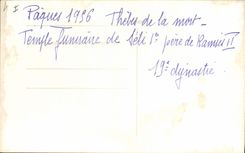 Pâques 1956 Thèbes de la mort -
Temple funéraire de Séti 1er père de Ramsès II
19e dynastie.